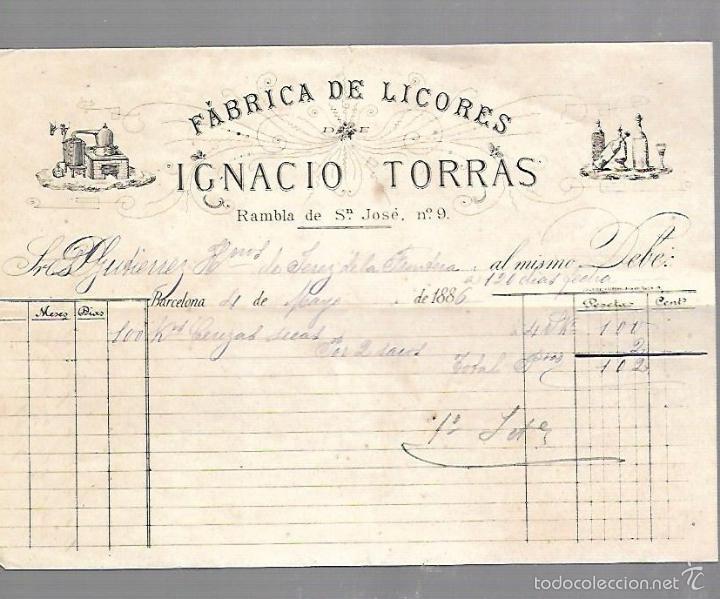 FÁBRICA DE LICORES
DE
IGNACIO TORRAS
Rambla de Sn. José, nº 9.
Sres Gutierrez Hnos de Jerez de la Frontera al mismo Debe:
a 120 dias fecha
Barcelona 21 de Mayo de 1886
Meses Dias Pesetas Cents
100 Ks Cerezas secas 100
Por 2 sacos 2
Total 102
todocoleccion.net TC